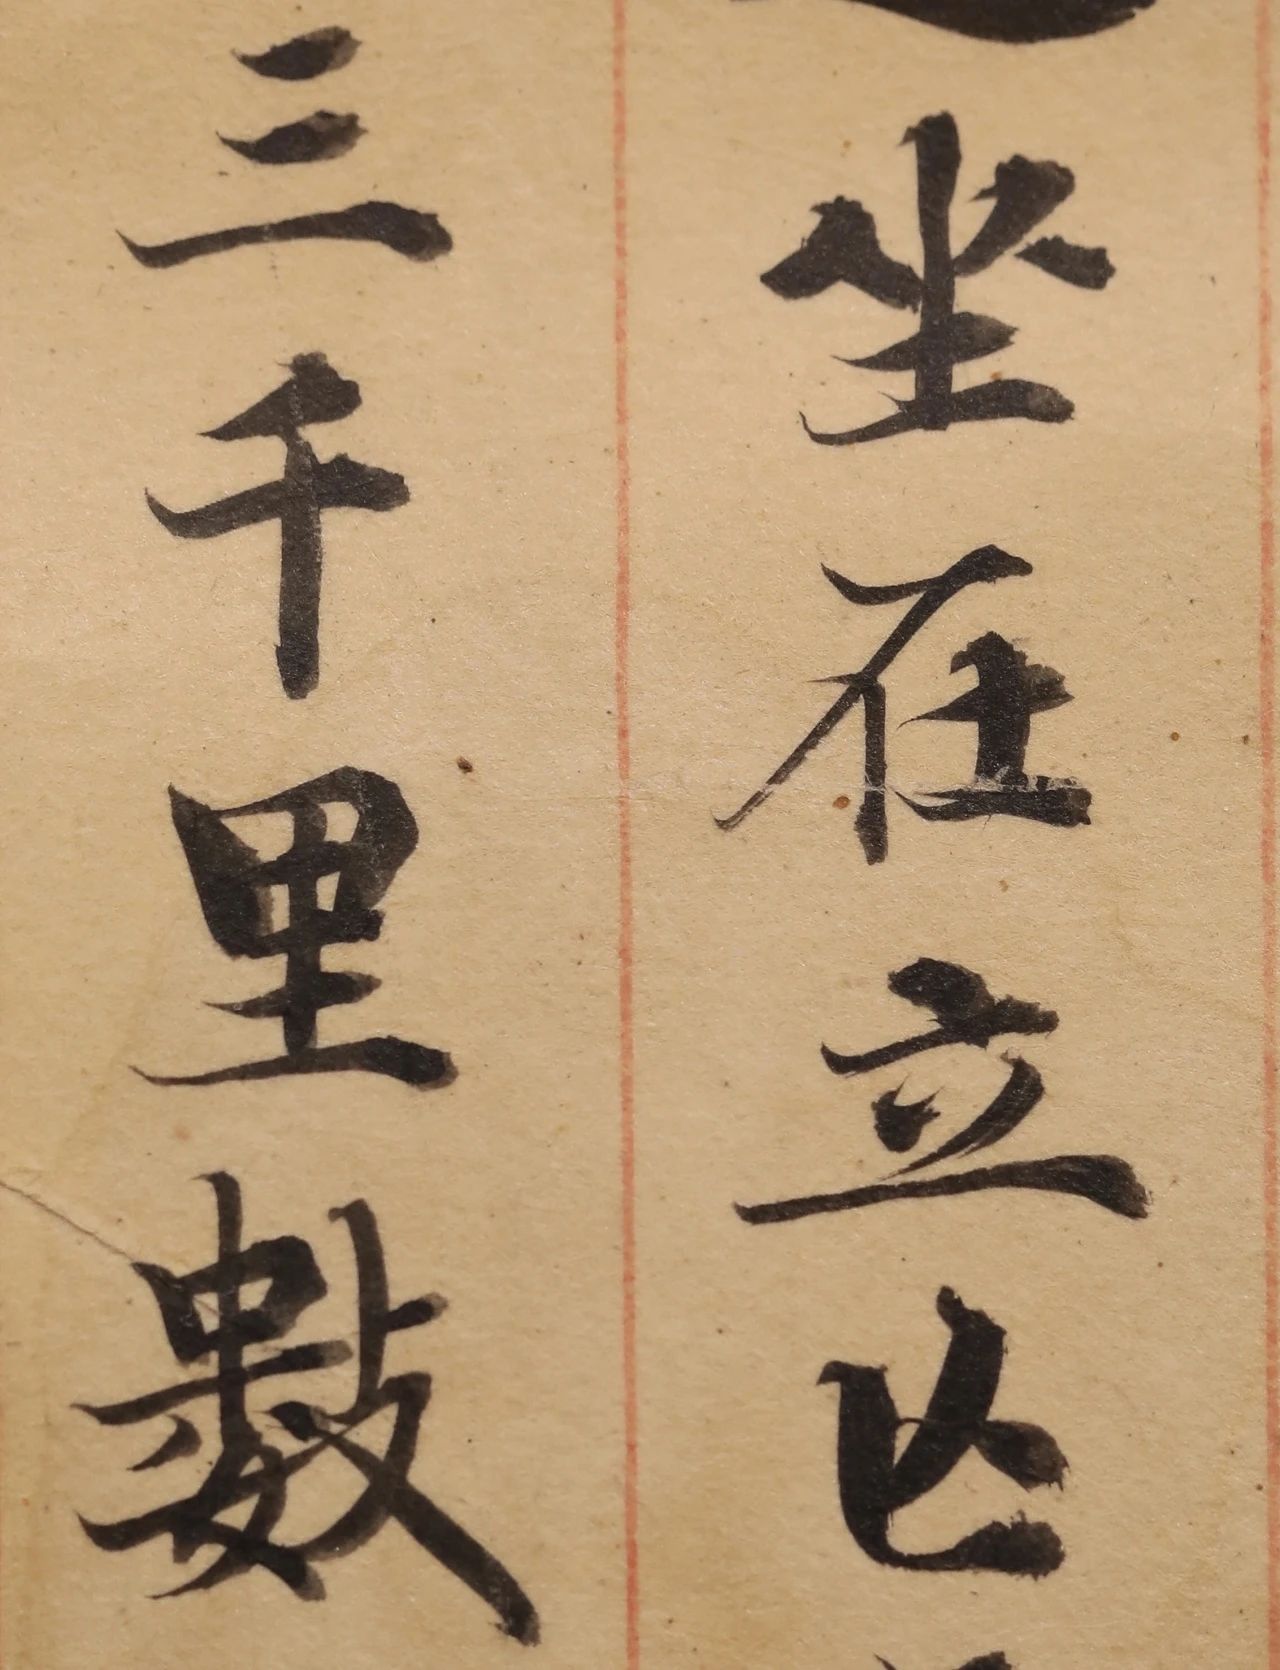 坐在立亡
三千里數